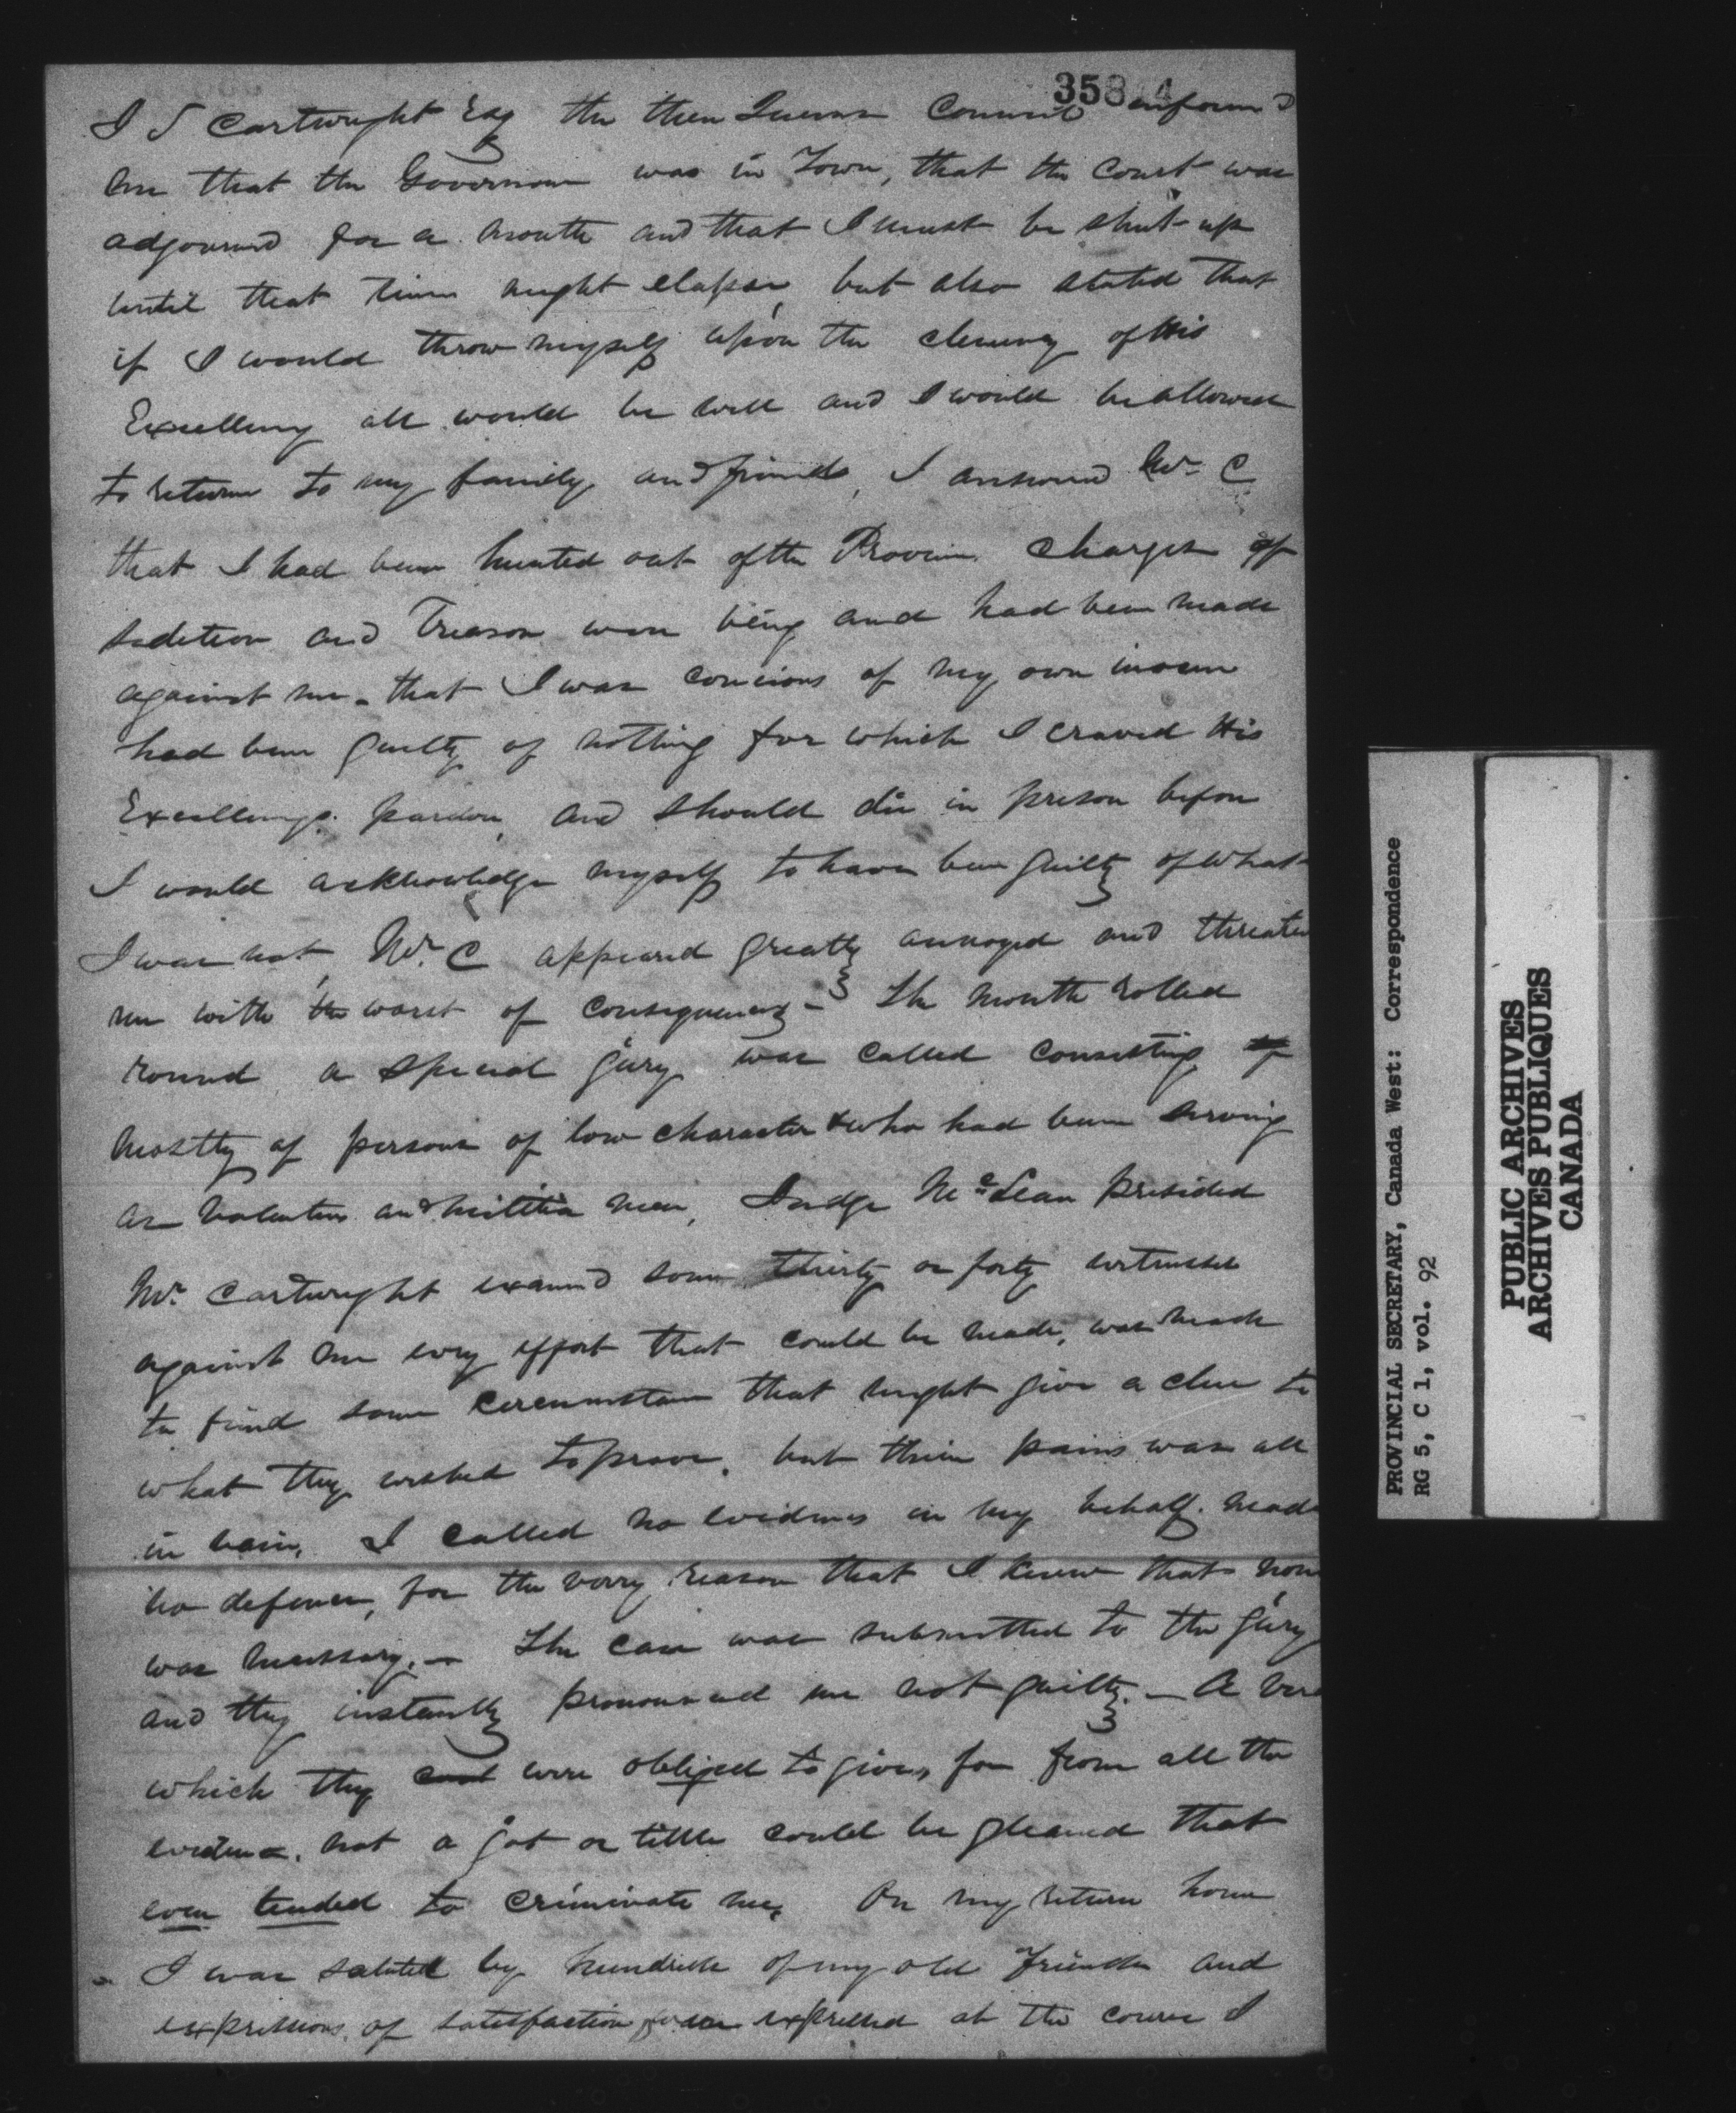 358 4
I S Cartwright Esq the then Queens Council inform'd
me that the Governour was in Town, that the Court was
adjourned for a month and that I must be shut up
until that time might elapse, but also stated that
if I would throw myself upon the clemency of His
Excellency all would be well and I would be allowed
to return to my family and friends, I answered Mr. C
that I had been hunted out of the Province Charges of
sedition and Treason were being and had been made
against me - that I was concious of my own inocence
had been guilty of nothing for which I craved His
Excellencys pardon, and should die in prison before
I would acknowledge myself to have been guilty of what
I was not, Mr. C appeared greatly annoyed and threaten
me with the worst of consequences - The month rolled
round a special jury was called consisting of
mostly of persons of low character & who had been serving
as volunteers and militia men, Judge McLean presided
Mr. Cartwright examin'd some thirty or forty witnesses
against me every effort that could be made, was made
to find some circumstance that might give a clue to
what they wished to prove, but their pains was all
in vain, I called no evidence in my behalf. made
no defence, for the very reason that I knew that none
was necessary. - The case was submitted to the jury
and they instantly pronounced me not guilty. - A ver
which they were obliged to give, for from all the
evidence, not a jot or tittle could be gleaned that
even tended to criminate me, On my return home
I was saluted by hundreds of my old friends and
expressions of satisfaction were expressed at the course I
PROVINCIAL SECRETARY, Canada West: Correspondence
RG 5, C 1, vol. 92
PUBLIC ARCHIVES
ARCHIVES PUBLIQUES
CANADA